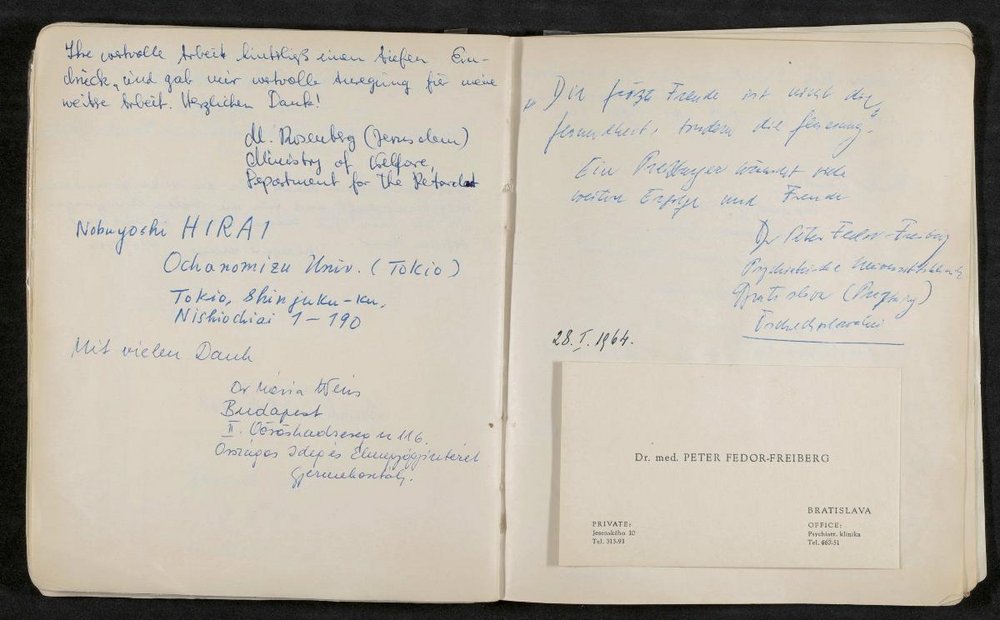 Ihre wertvolle Arbeit hinterließ einen tiefen Ein-
druck, und gab mir wertvolle Anregung für meine
weitere Arbeit. Herzlichen Dank!
M. Rosenberg (Jerusalem)
Ministry of Welfare,
Department for the Retarded
Nobuyoshi HIRAI
Ochanomizu Univ. (Tokio)
Tokio, Shinjuku-ku,
Nishiochiai 1-190
Mit vielen Dank
Dr Mária Weis
Budapest
II. 116.
Országos Ideg és
Gyermekosztály.
"Die größte Freude ist nicht die
Gesundheit, sondern die Genesung."
Ein Preßburger wünscht viele
weitere Erfolge und Freude
Dr Peter Fedor-Freiberg
Psychiatrische Universitätsklinik
Bratislava (Preßburg)
Tschechoslovakei
28. I. 1964.
Dr. med. PETER FEDOR-FREIBERG
BRATISLAVA
PRIVATE:
Jesenského 10
Tel. 315-93
OFFICE:
Psychiatr. klinika
Tel. 467-51